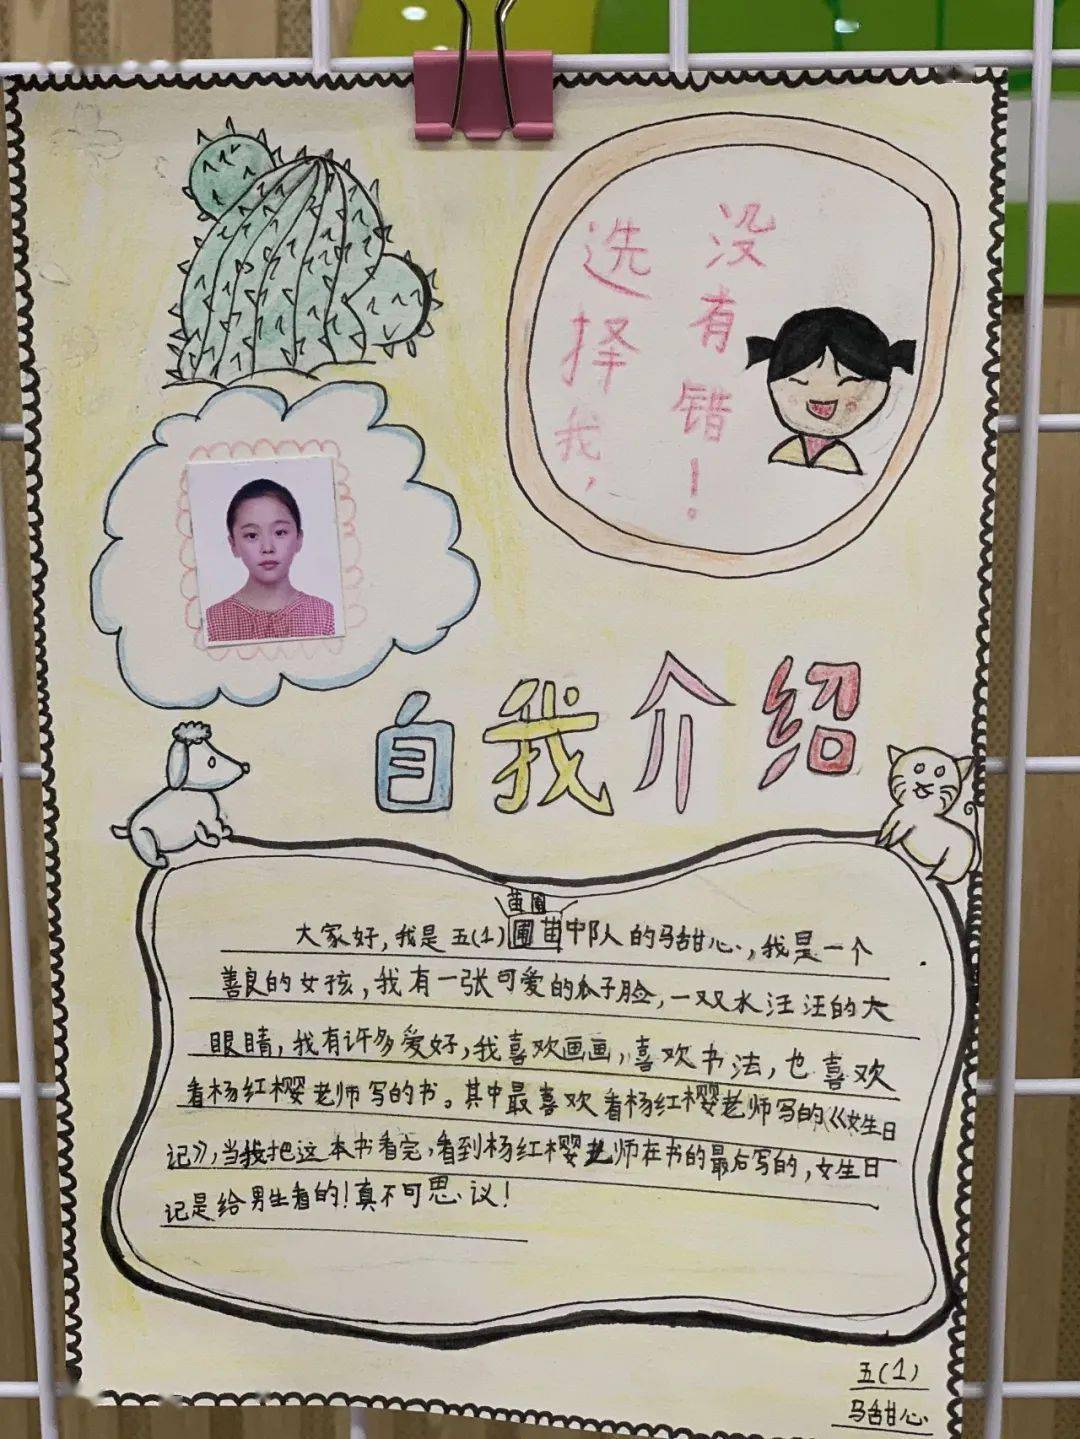 选择我，
没有错！
自我介绍
苗圃
大家好，我是五(1)圃苗中队人的马甜心，我是一个
善良的女孩，我有一张可爱的瓜子脸，一双水汪汪的大
眼睛，我有许多爱好，我喜欢画画，喜欢书法，也喜欢
看杨红樱老师写的书。其中最喜欢看杨红樱老师写的《女生日
记》，当我把这本书看完，看到杨红樱老师在书的最后写的，女生日
记是给男生看的！真不可思议！
五(1)
马甜心